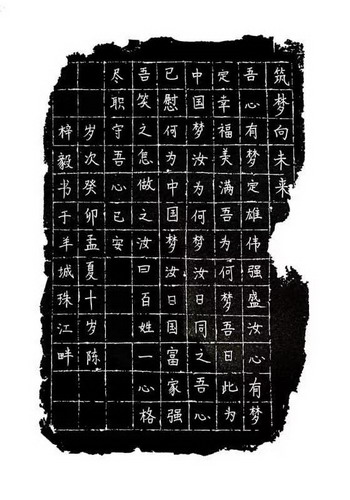 筑梦向未来
吾心有梦定雄伟强盛汝心有梦
定幸福美满吾为何梦吾曰此为
中国梦汝为何梦汝曰同之吾心
已慰何为中国梦汝曰国富家强
吾笑之怎做之汝曰百姓一心格
尽职守吾心已安
岁次癸卯孟夏十岁陈
梓毅书于羊城珠江畔